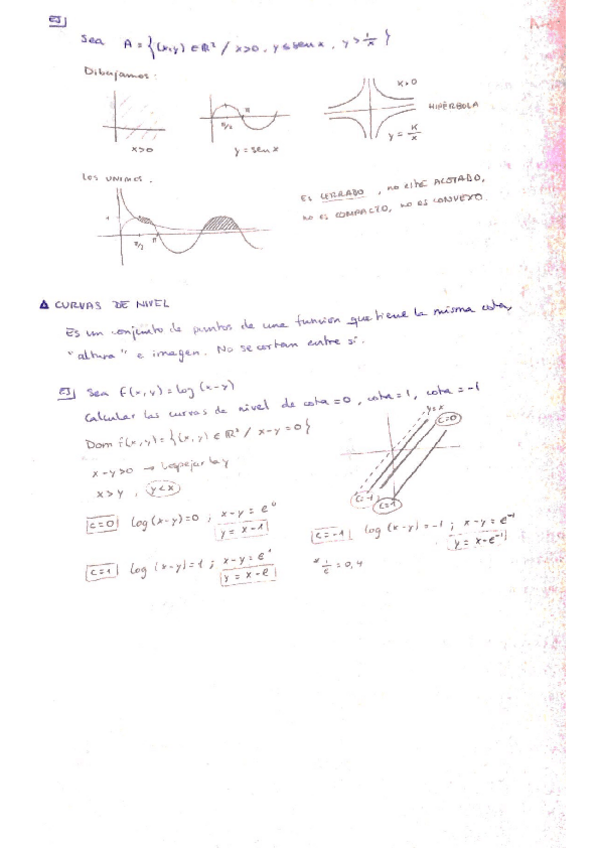 EJ
Sea A = {(x,y) ∈ R² / x>0, y≤sen x, y > 1/x }
Dibujamos:
x>0
π/2 π
y = sen x
K>0
HIPÉRBOLA
y = K/x
LOS UNIMOS.
π/2 π
ES CERRADO, no esté ACOTADO,
no es COMPACTO, no es CONVEXO
Δ CURVAS DE NIVEL
Es un conjunto de puntos de una función que tiene la misma cota,
"altura" e imagen. No se cortan entre sí.
EJ Sea f(x,y) = log (x-y)
Calcular las curvas de nivel de cota = 0, cota = 1, cota = -1
Dom f(x,y) = {(x,y) ∈ R² / x-y = 0}
x-y>0 → Despejar la y
x>y, y<x
y=x
C=0
C=-1
C=1
C=0 log (x-y)=0 ; x-y = e⁰
y = x-1
C=1 log (x-y)=1 ; x-y = e¹
y = x-e
C=-1 log (x-y) = -1 ; x-y = e⁻¹
y = x-e⁻¹
* 1/e = 0,4